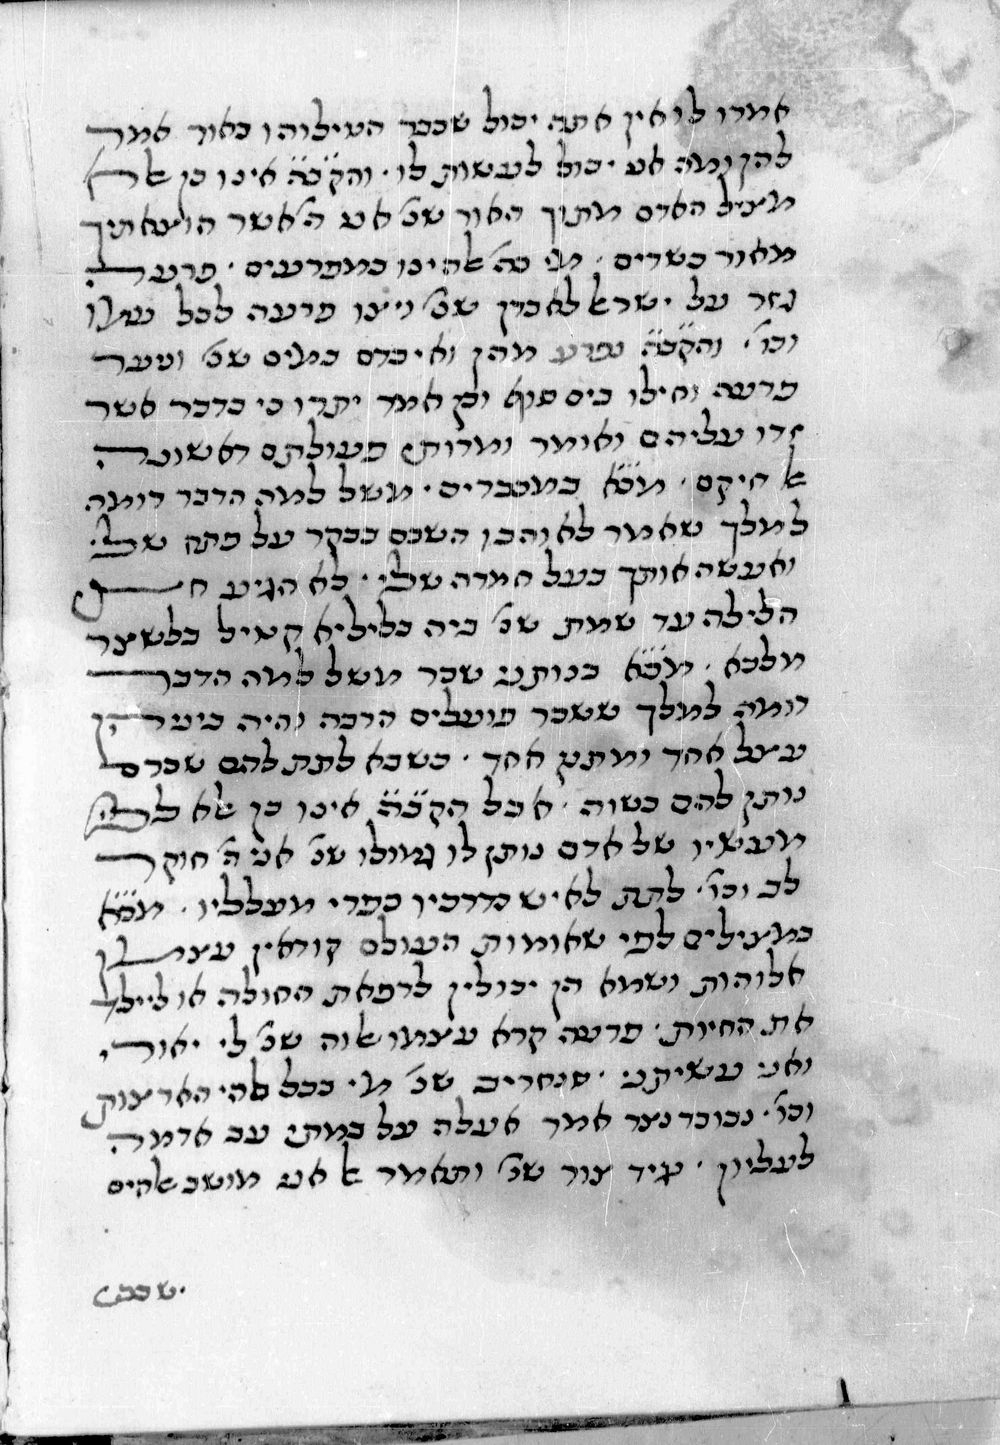 אמרו לו אין אתה יכול שכבר הטילוהו באור אמר
להן ומה אני יכול לעשות לו · והק̈ב̈ה̈ אינו כן אלא
מציל האדם מתוך האור שנ׳ אני ה׳ אשר הוצאתיך
מאור כשדים · מי כה׳ אלהינו במפרעים · פרעה
גזר על ישראל לאבדן שנ׳ ויצו פרעה לכל עמו
וכו׳ · והק̈ב̈ה̈ נפרע מהן ואיבדם במים שנ׳ וניער
פרעה וחילו בים סוף וכן אמר יתרו כי בדבר אשר
זדו עליהם ואומר ומדותי פעולתם ראשונה
אל חיקם · מ̈כ̈א̈ במכבדים · משל למה הדבר דומה
למלך שאמר לאוהבו השכם בבקר על פתח שלי
ואעשה אותך בעל חמדה שלי · לא הגיע חצי
הלילה עד שמת שנ׳ ביה בליליא קטיל בלשצר
מלכא · מ̈כ̈א̈ בנותני שכר משל למה הדבר
דומה למלך ששכר פועלים הרבה והיה ביניהן
עצל אחד ומתון אחד · כשבא לתת להם שכרם
נותן להם בשוה · אבל הק̈ב̈ה̈ אינו כן אלא לפי
מעשיו של אדם נותן לו גמולו שנ׳ אני ה׳ חוקר
לב וכו׳ · לתת לאיש כדרכיו כפרי מעלליו · מ̈כ̈א̈
במצילים לפי שאומות העולם קוראין עצמן
אלוהות ושמא הן יכולין לרפאת החולה או לילל
את החיות · פרעה קרא עצמו אלוה שנ׳ לי יאורי
ואני עשיתני · סנחריב שנ׳ מי בכל אלהי הארצות
וכו׳ · נבוכדנצר אמר אעלה על במתי עב אדמה
לעליון · נגיד צור שנ׳ ותאמר אל אני מושב אלהים
ישבתי